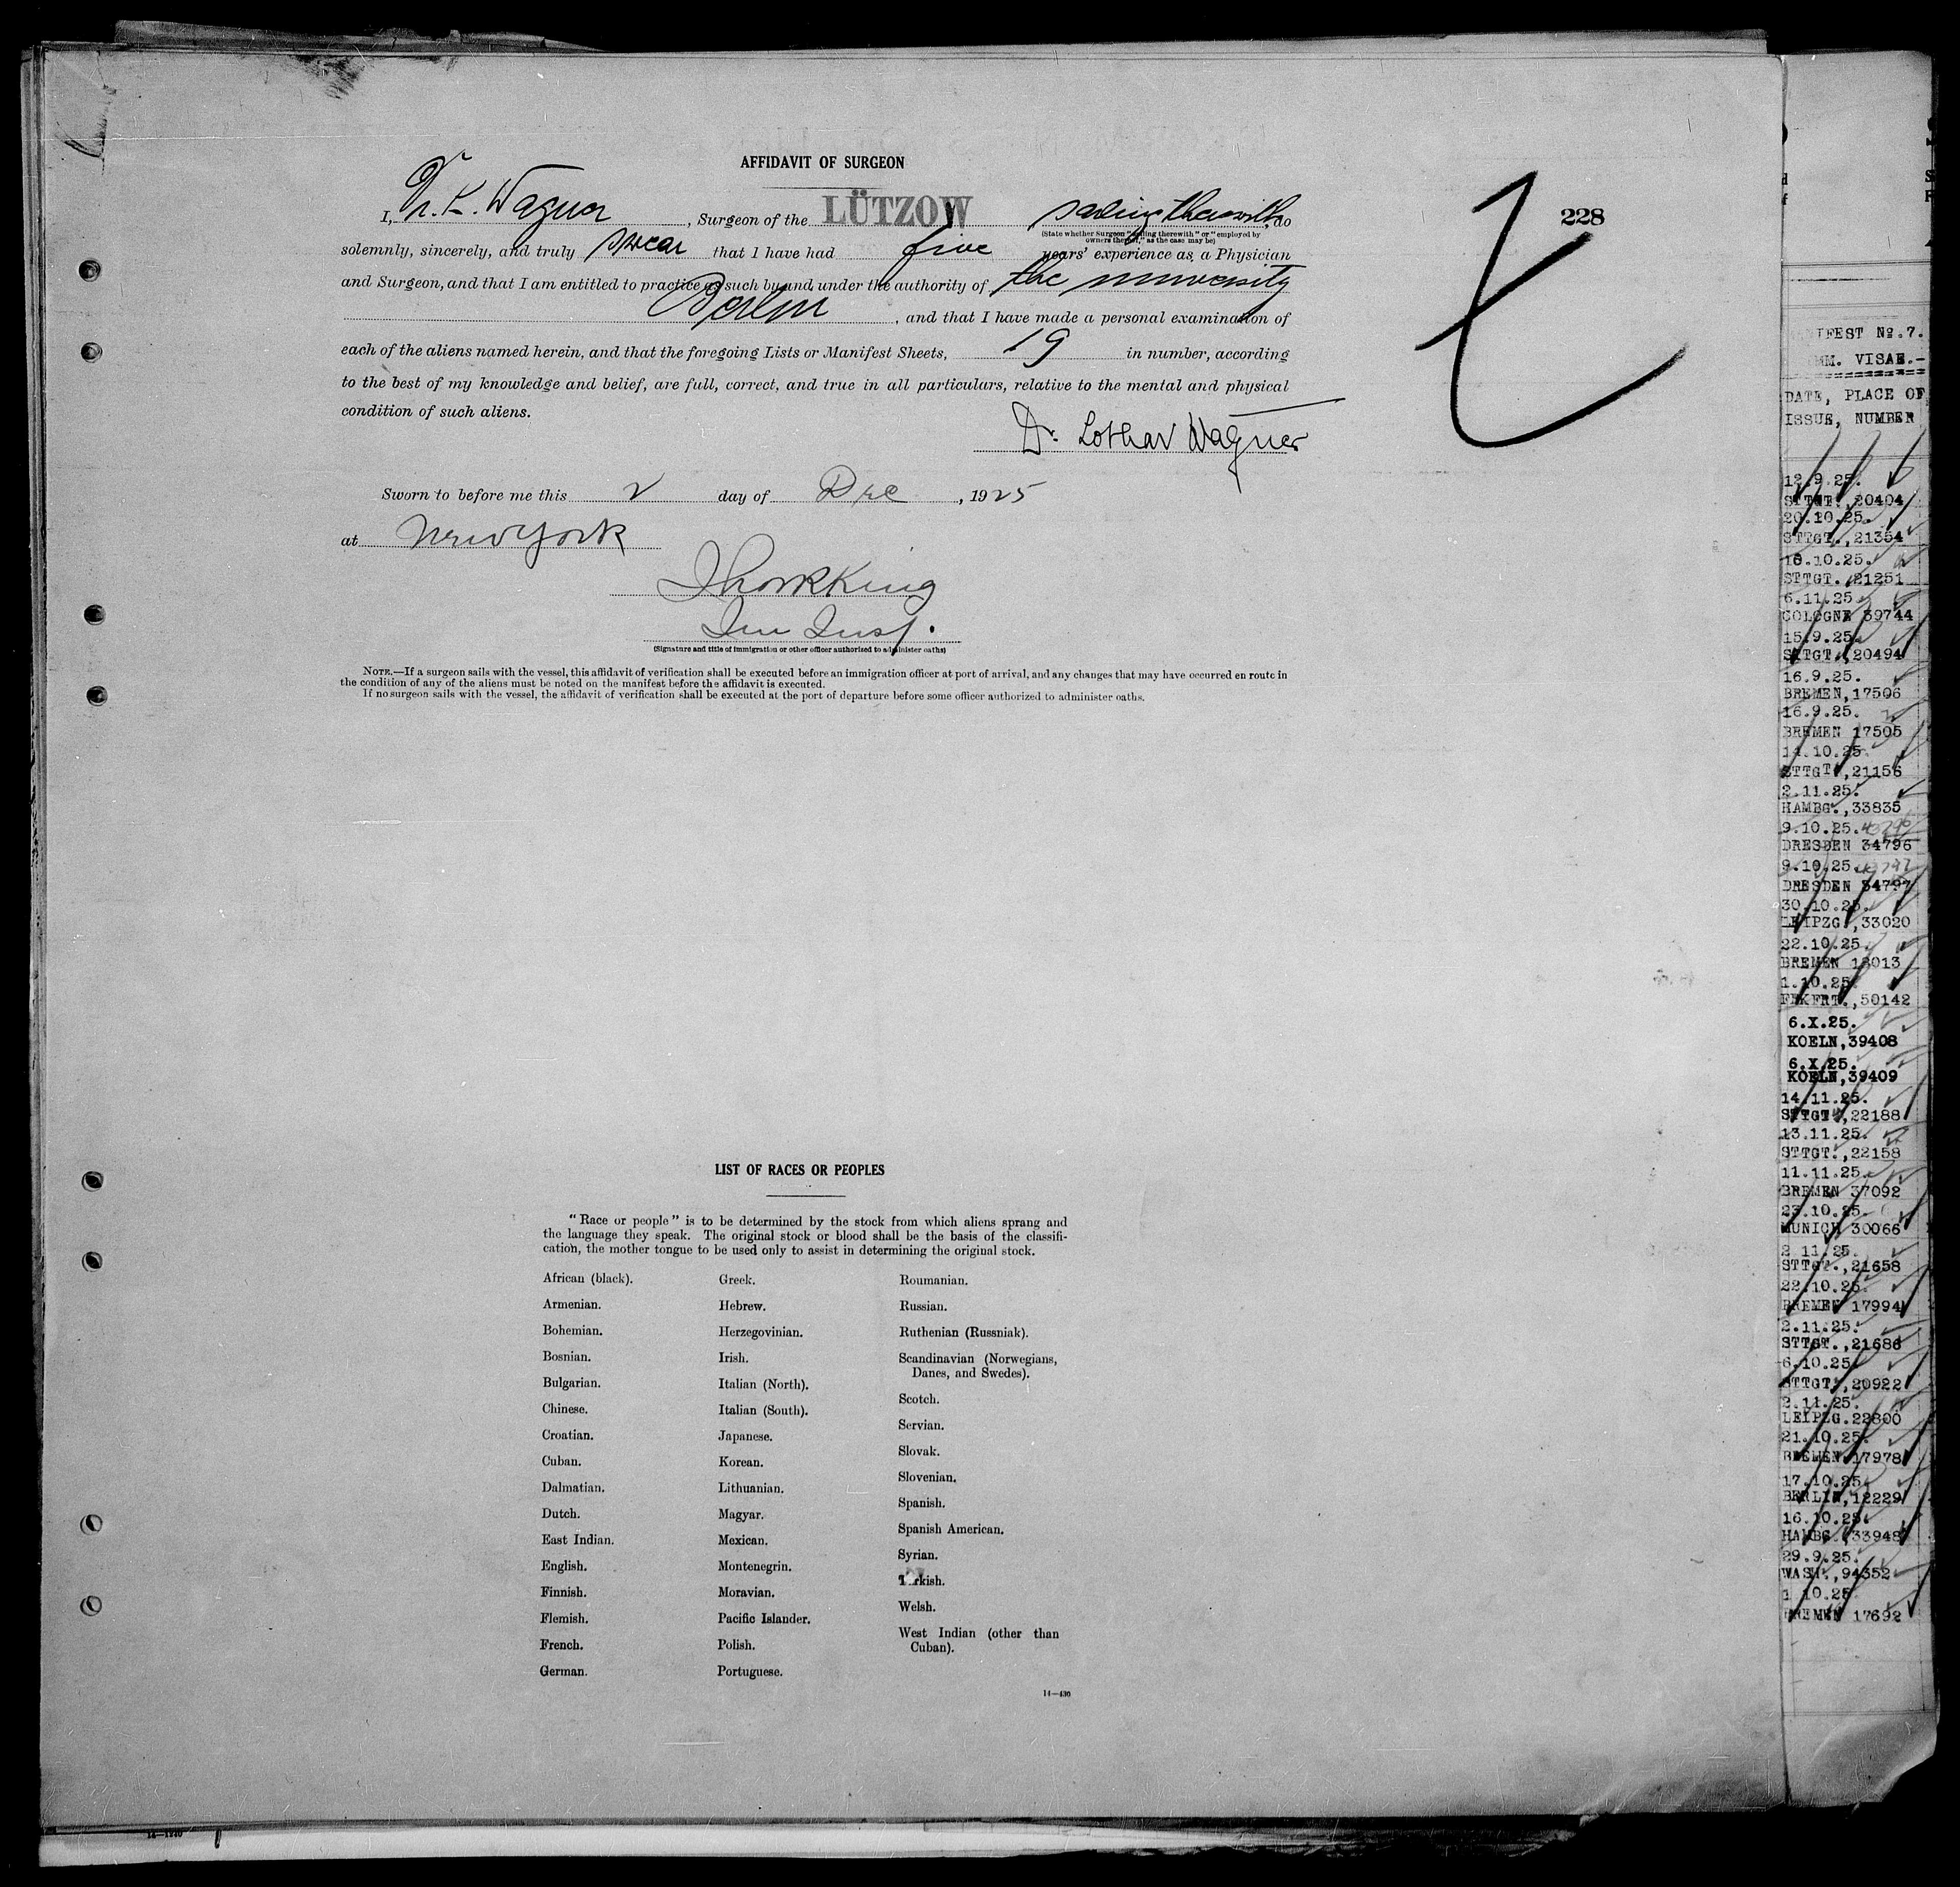 AFFIDAVIT OF SURGEON
I, Dr. K. Wagner, Surgeon of the LÜTZOW sailing therewith, do
(State whether Surgeon "sailing therewith" or "employed by
owners thereof," as the case may be)
228
solemnly, sincerely, and truly swear that I have had five years' experience as a Physician
and Surgeon, and that I am entitled to practice as such by and under the authority of the university
Berlin, and that I have made a personal examination of
each of the aliens named herein, and that the foregoing Lists or Manifest Sheets, 19 in number, according
to the best of my knowledge and belief, are full, correct, and true in all particulars, relative to the mental and physical
condition of such aliens.
Dr. Lothar Wagner
Sworn to before me this 2 day of Dec, 1925
at New York
Imm Insp.
(Signature and title of immigration or other officer authorized to administer oaths)
NOTE.—If a surgeon sails with the vessel, this affidavit of verification shall be executed before an immigration officer at port of arrival, and any changes that may have occurred en route in
the condition of any of the aliens must be noted on the manifest before the affidavit is executed.
If no surgeon sails with the vessel, the affidavit of verification shall be executed at the port of departure before some officer authorized to administer oaths.
LIST OF RACES OR PEOPLES
"Race or people" is to be determined by the stock from which aliens sprang and
the language they speak. The original stock or blood shall be the basis of the classifi-
cation, the mother tongue to be used only to assist in determining the original stock.
African (black).
Armenian.
Bohemian.
Bosnian.
Bulgarian.
Chinese.
Croatian.
Cuban.
Dalmatian.
Dutch.
East Indian.
English.
Finnish.
Flemish.
French.
German.
Greek.
Hebrew.
Herzegovinian.
Irish.
Italian (North).
Italian (South).
Japanese.
Korean.
Lithuanian.
Magyar.
Mexican.
Montenegrin.
Moravian.
Pacific Islander.
Polish.
Portuguese.
Roumanian.
Russian.
Ruthenian (Russniak).
Scandinavian (Norwegians,
Danes, and Swedes).
Scotch.
Servian.
Slovak.
Slovenian.
Spanish.
Spanish American.
Syrian.
Turkish.
Welsh.
West Indian (other than
Cuban).
14—430
IFEST No. 7.
MM. VISAE.-
DATE, PLACE OF
ISSUE, NUMBER
12.9.25.
STTGT.,20404
20.10.25.
STTGT.,21354
16.10.25.
STTGT.,21251
6.11.25.
COLOGNE 39744
15.9.25.
STTGT.,20494
16.9.25.
BREMEN,17506
16.9.25.
BREMEN 17505
14.10.25.
STTGT.,21156
2.11.25.
HAMBG.,33835
9.10.25.
DRESDEN 34796
9.10.25.
DRESDEN 34797
30.10.25.
LEIPZG.,33020
22.10.25.
BREMEN 18013
1.10.25.
FRKFRT.,50142
6.X.25.
KOELN,39408
6.X.25.
KOELN,39409
14.11.25.
STTGT.,22188
13.11.25.
STTGT.,22158
11.11.25.
BREMEN 37092
23.10.25.
MUNICH 30066
2.11.25.
STTGT.,21658
22.10.25.
BREMEN 17994
2.11.25.
STTGT.,21686
6.10.25.
STTGT.,20922
2.11.25.
LEIPZG.22800
21.10.25.
BREMEN.17978
17.10.25.
BERLIN,12229
16.10.25.
HAMBG.,33948
29.9.25.
WASH.,94352
1.10.25
BREMEN 17692